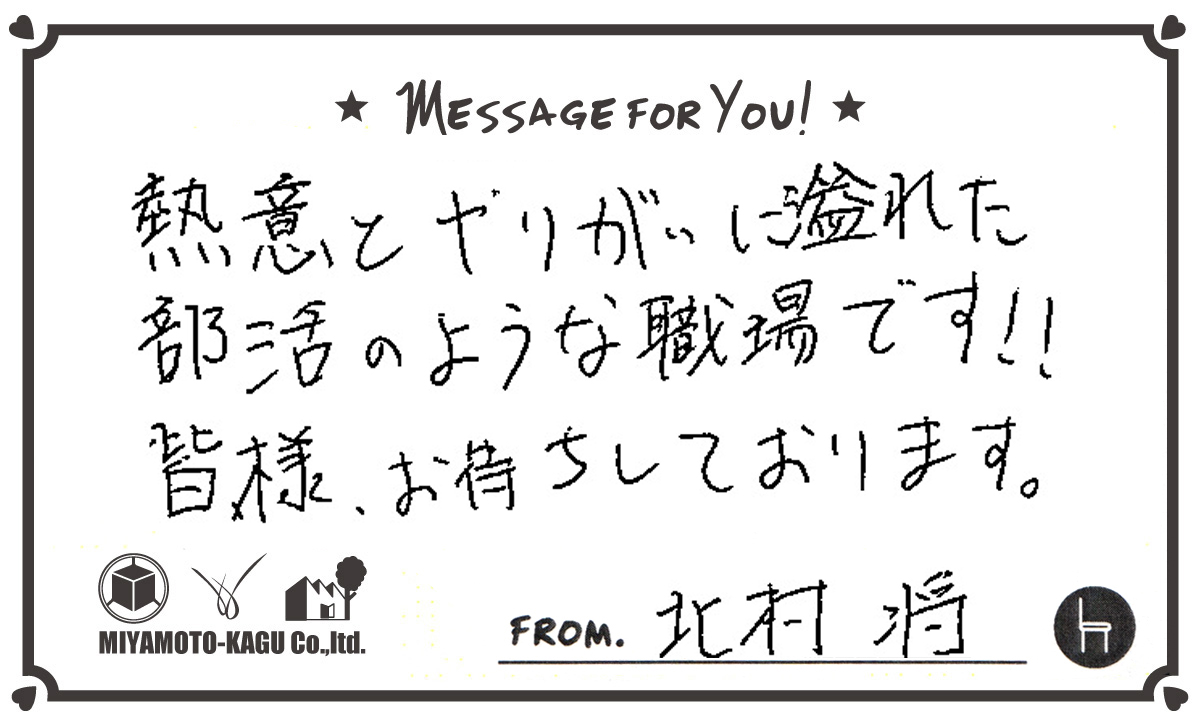 ★ MESSAGE FOR YOU! ★
熱意とヤりがいに溢れた
部活のような職場です!!
皆様、お待ちしております。
MIYAMOTO-KAGU Co.,ltd.
FROM. 北村 将